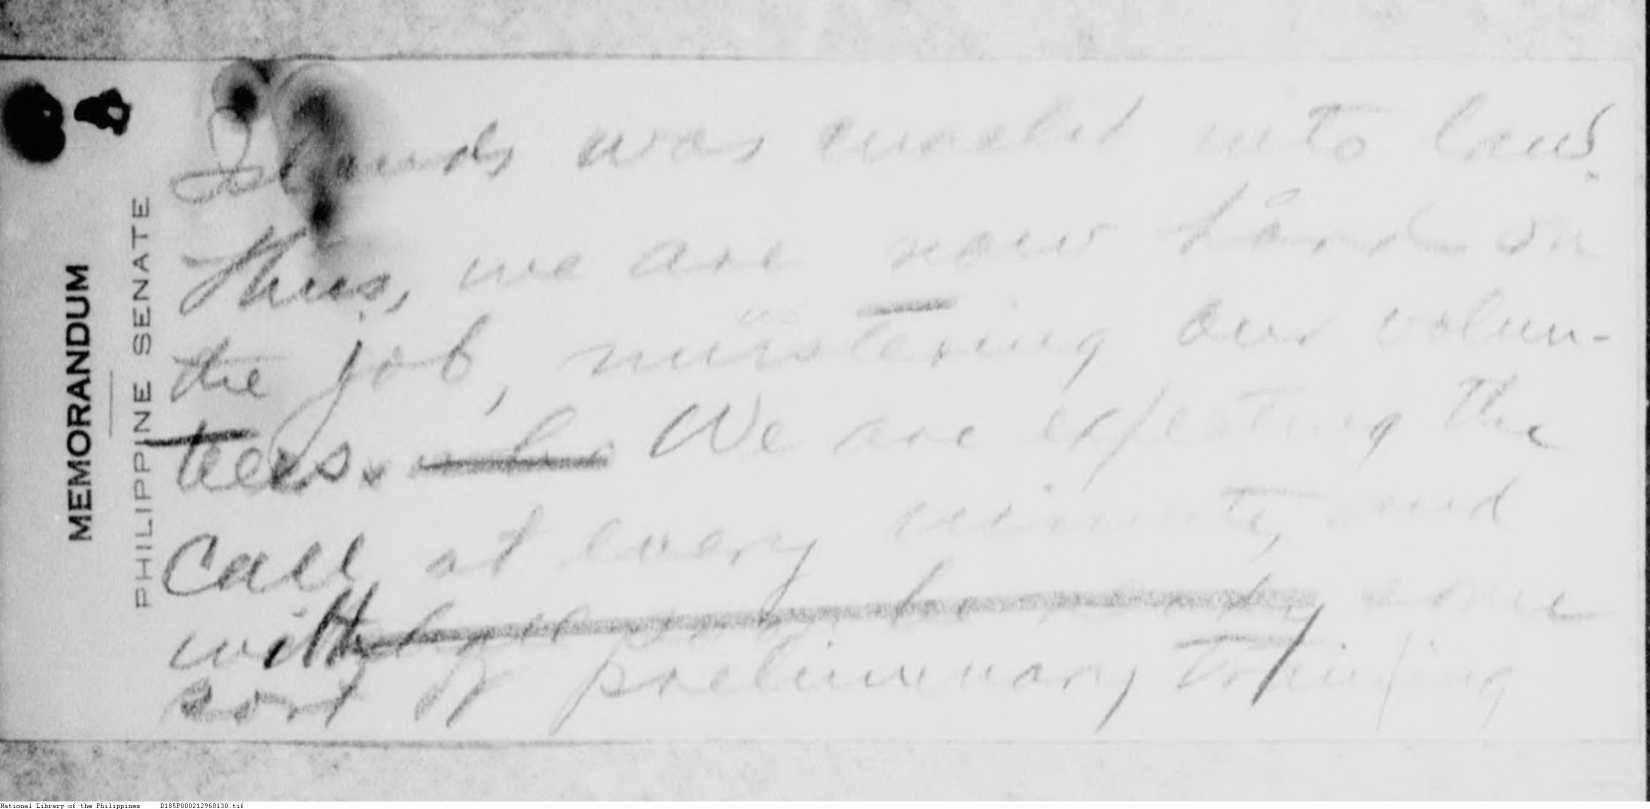 MEMORANDUM
PHILIPPINE SENATE
Islands was enacted into law.
Thus, we are now hard on
the job, mustering our volun-
teers. who We are expecting the
call at every minute, and
with some
sort of preliminary training
National Library of the Philippines D185P000212960130.tif